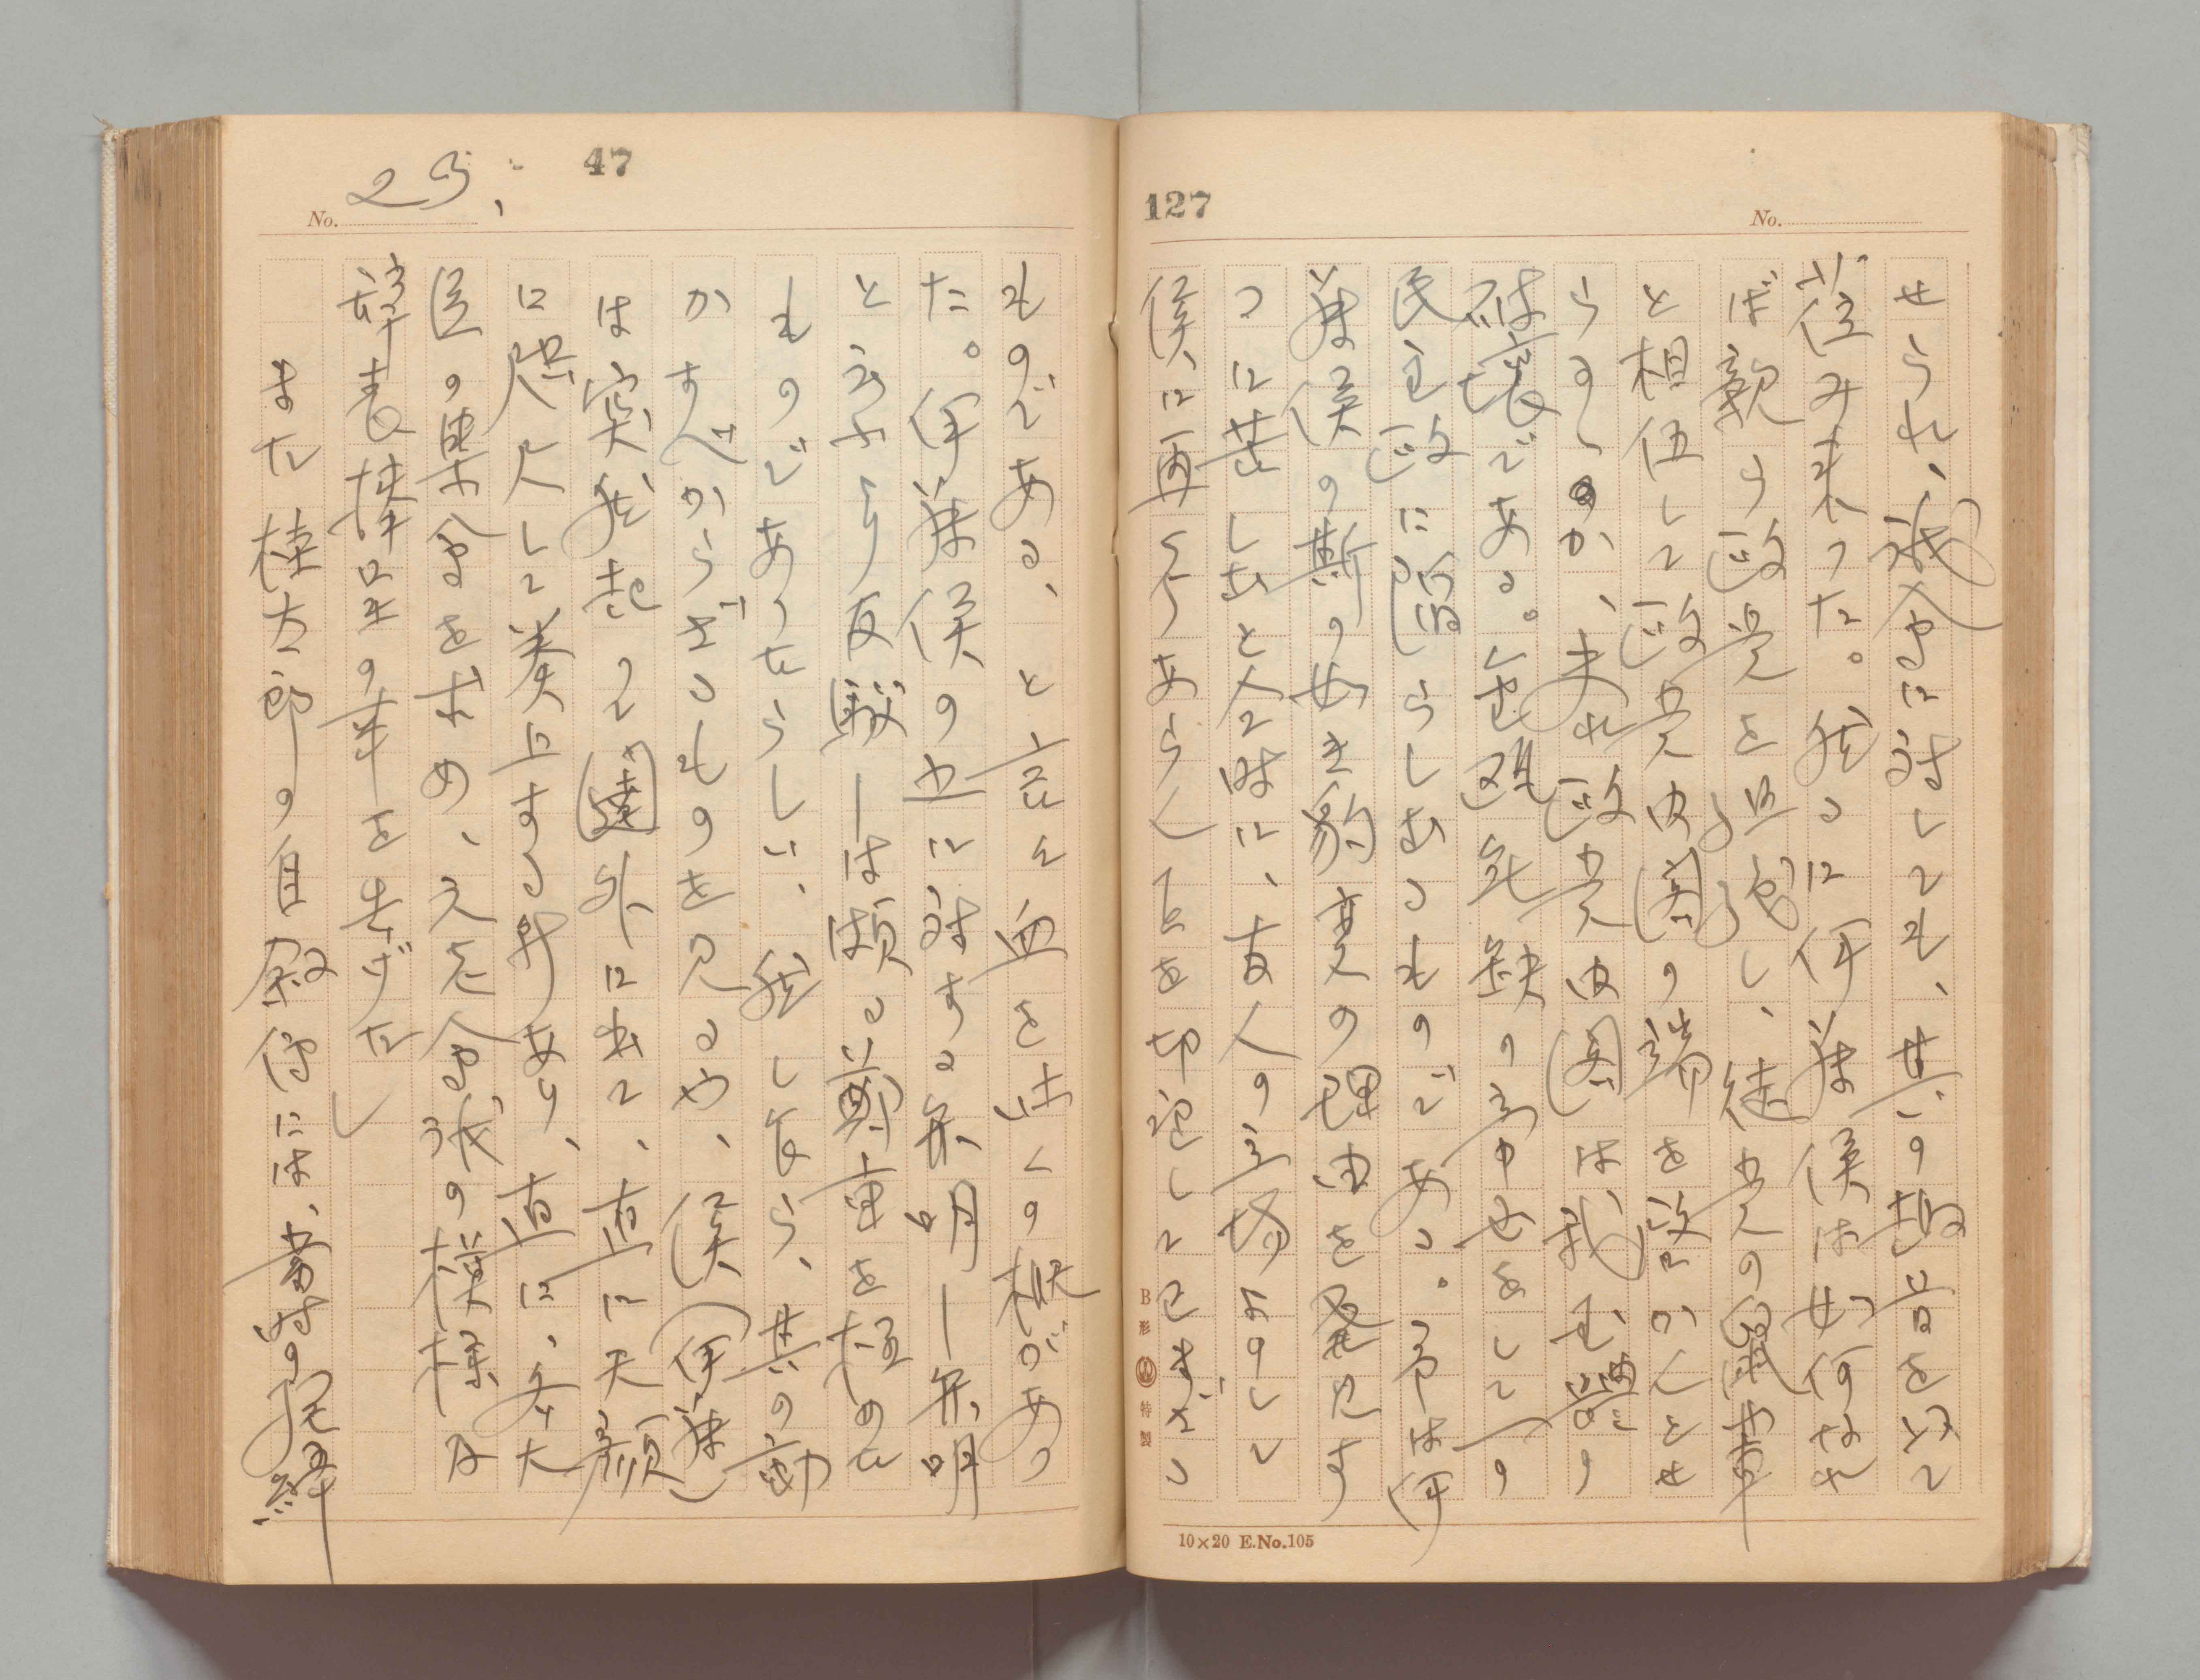 127
No.
せられ、議会に対しても、其の趣旨を以て
莅み来つた。然るに伊藤侯は如何なれ
ば親ら政党を組織し、徒党の
と相伍して政党内閣の端を啓かんとせ
らるゝのか、夫れ政党内閣は我国体の
破壊である。金甌無欠の国体をして一の
民主政に陥らしむるものである。予は伊
藤侯の斯の如き豹変の理由を発見す
るに苦しむと人時に、友人の立場よりして
侯に再考あらんことを切望して已まざる
B形 特製
10×20 E.No.105
47
No. 23.
ものである、と言々血を吐くの概があつ
た。伊藤侯の也に対する弁明――弁明
と云ふより反駁――は頗る簡単を極めた
ものであつたらしい、然しながら、其の動
かすべからざるものを見るや、侯(伊藤)
は突然起つて闥外に出て、直に天顔
に咫尺して奏上する所あり、直に、女大
臣の集会を求め、之を会議の模様及
辞表捧呈の事を告げた」
また桂太郎の自叙伝には、当時の経緯